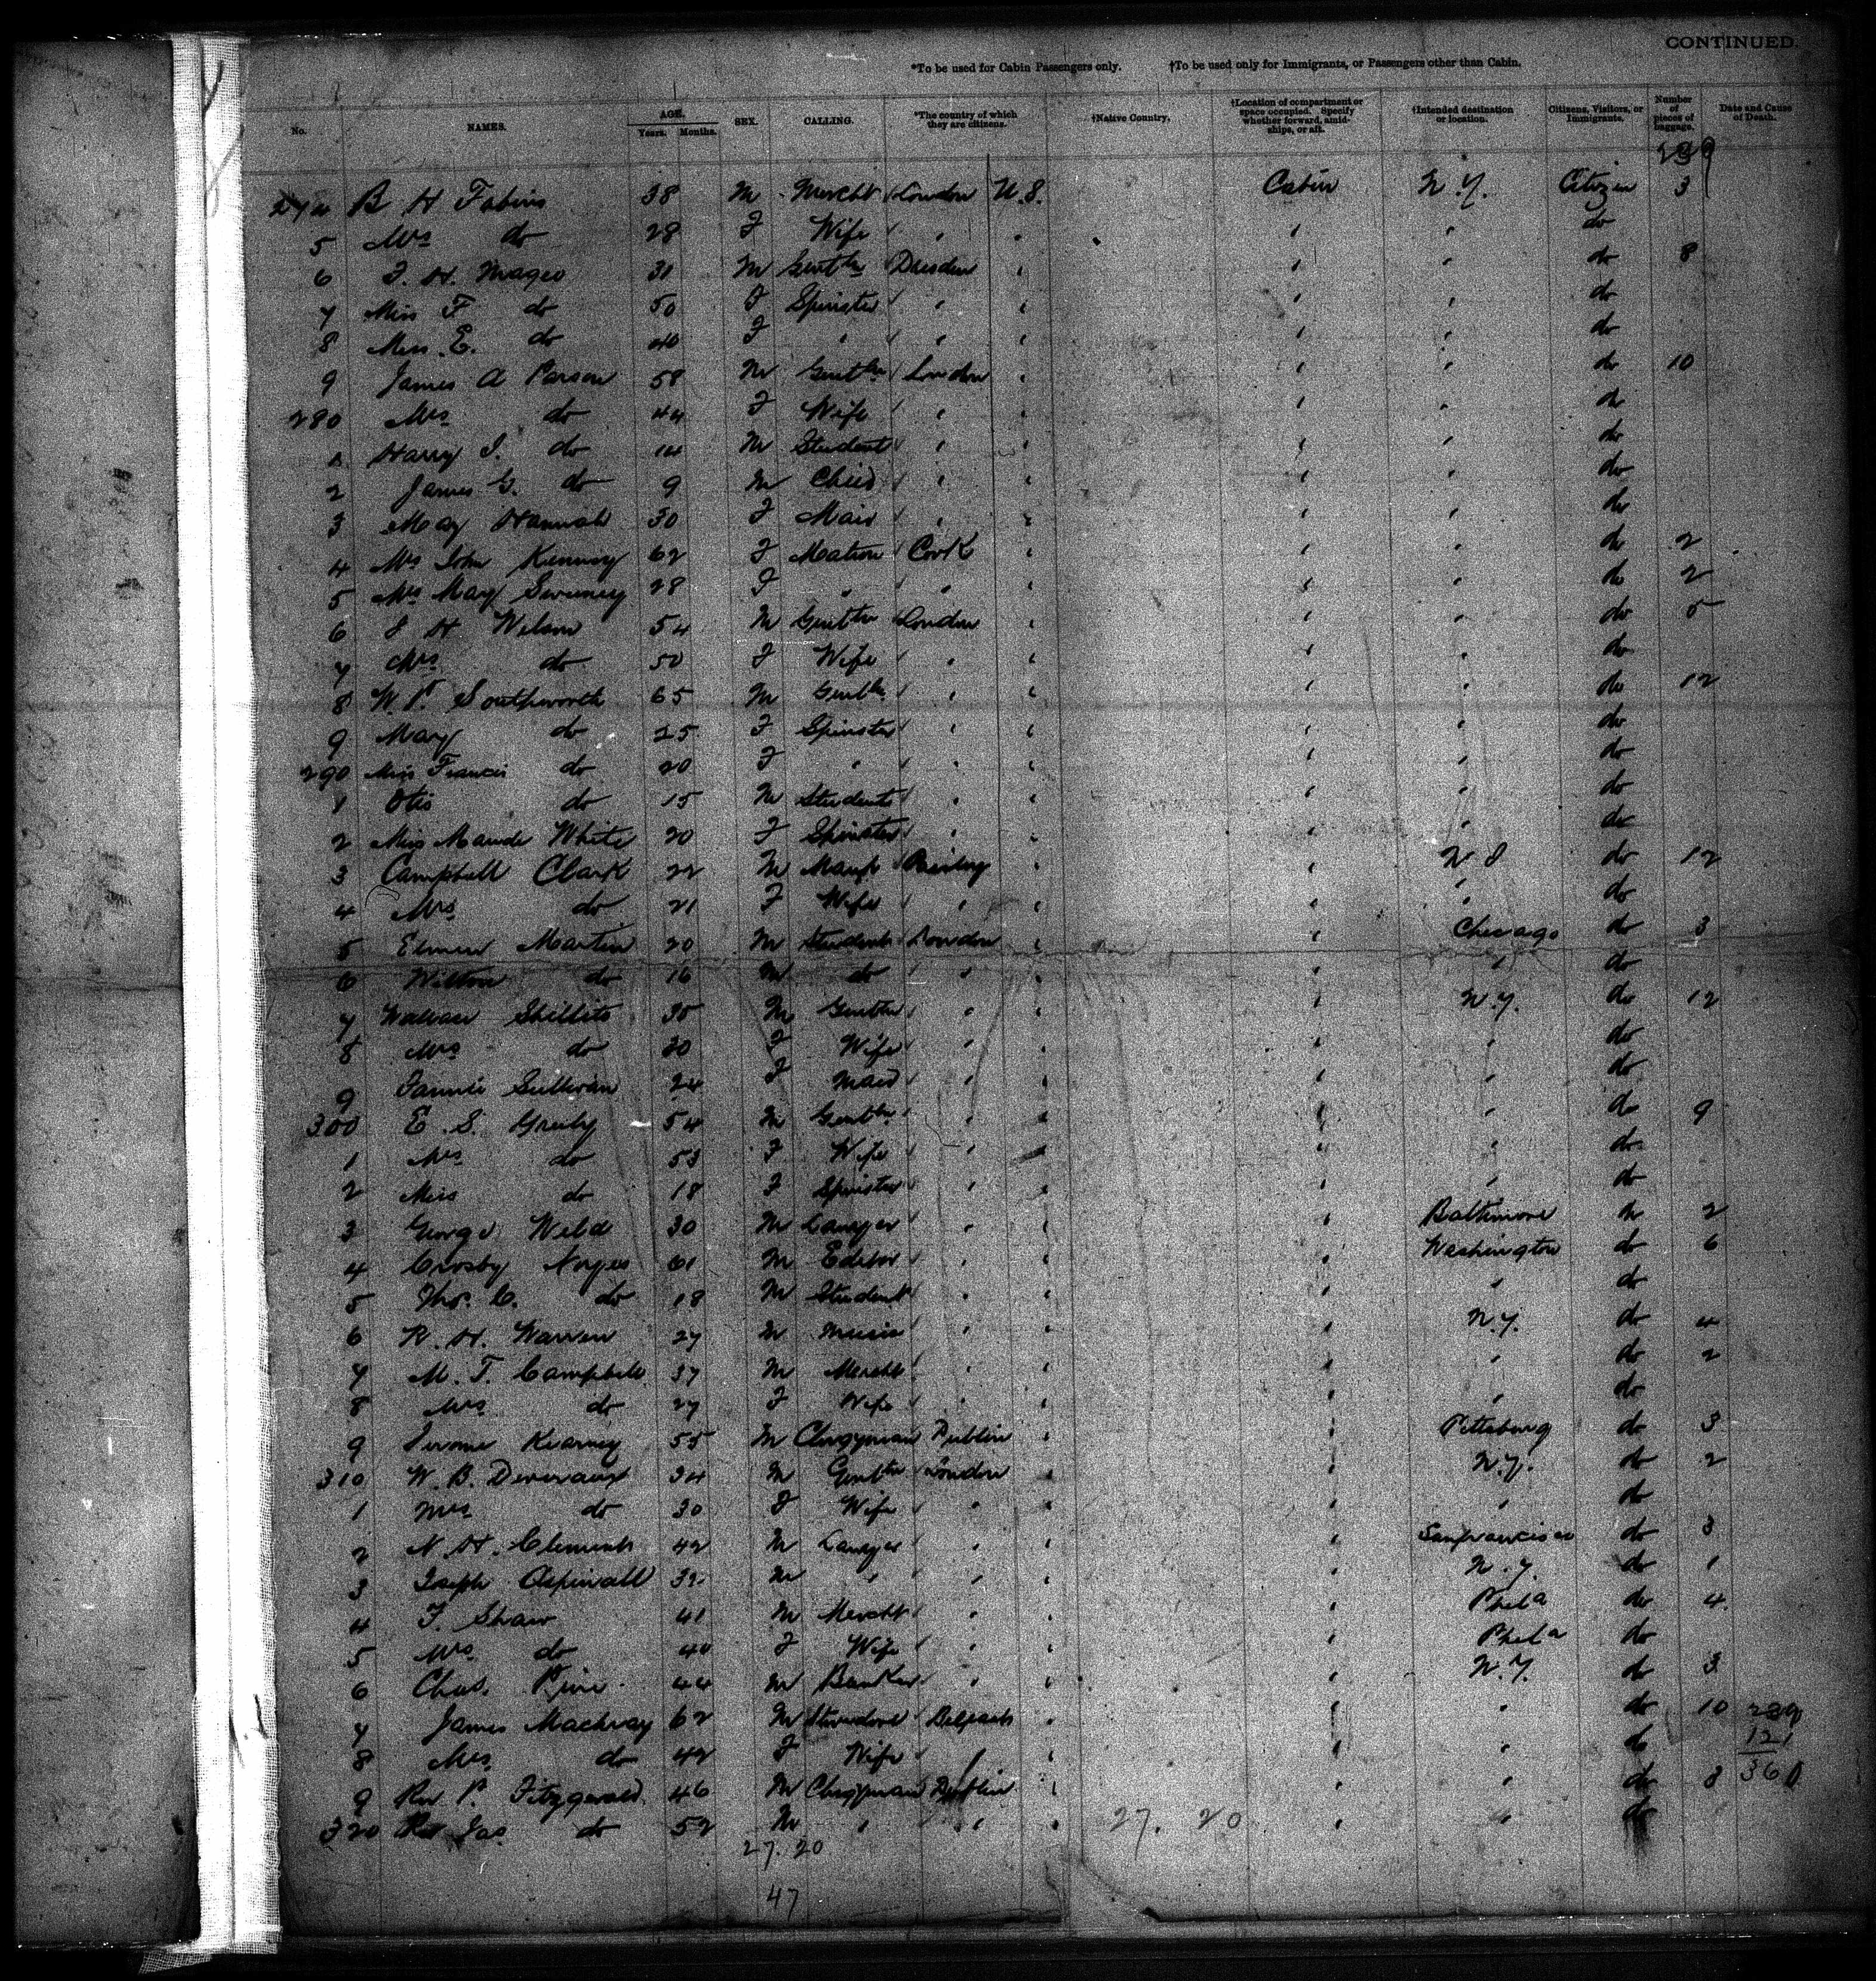 CONTINUED.
*To be used for Cabin Passengers only. †To be used only for Immigrants, or Passengers other than Cabin.
No. NAMES. AGE. Years. Months. SEX. CALLING. *The country of which they are citizens. †Native Country. †Location of compartment or space occupied. Specify whether forward, amidships, or aft. †Intended destination or location. Citizens, Visitors, or Immigrants. Number of pieces of baggage. Date and Cause of Death.
239
274 B H Fabins 38 M Mercht London U.S. Cabin N.Y. Citizen 3
5 Mrs do 28 F Wife " " " " do
6 F. H. Magee 31 M Gentln Dresden " " " do 8
7 Miss F do 50 F Spinster " " " " do
8 Miss E. do 40 F " " " " " do
9 James A Parson 58 M Gentln London " " " do 10
280 Mrs do 44 F Wife " " " " do
1 Harry I. do 14 M Student " " " " do
2 James G. do 9 M Chied " " " " do
3 May Hannah 30 F Maid " " " " do
4 Mrs John Kenny 62 F Matron Cork " " " do 2
5 Mrs May Sweeney 28 F " " " " " do 2
6 J H Wilson 54 M Gentln London " " " do 5
7 Mrs do 50 F Wife " " " " do
8 W. P. Southworth 65 M Gentln " " " " do 12
9 Mary do 25 F Spinster " " " " do
290 Miss Francis do 20 F " " " " " do
1 Otis do 15 M Student " " " " do
2 Miss Maude White 20 F Spinster " " " " do
3 Campbell Clark 22 M Manfr Paisley " " N J do 12
4 Mrs do 21 F Wife " " " " do
5 Elmer Martin 20 M Student London " " Chicago do 3
6 Wilton do 16 M do " " " " do
7 Wallace Shillito 35 M Gentln " " " N.Y. do 12
8 Mrs do 30 F Wife " " " " do
9 Fannie Sullivan 24 F Maid " " " " do
300 E. S. Greely 54 M Gentln " " " " do 9
1 Mrs do 53 F Wife " " " " do
2 Miss do 18 F Spinster " " " " do
3 George Weld 30 M Lawyer " " " Baltimore do 2
4 Crosby Noyes 61 M Editor " " " Washington do 6
5 Thos. C. do 18 M Student " " " " do
6 R. H. Warren 27 M Music " " " N.Y. do 4
7 M. T. Campbell 37 M Mercht " " " " do 2
8 Mrs do 27 F Wife " " " " do
9 Jerome Kearney 55 M Clergyman Dublin " " Pittsburg do 3
310 W. B. Devereaux 34 M Gentln London " " N.Y. do 2
1 Mrs do 30 F Wife " " " " do
2 N. H. Clements 42 M Lawyer " " " Sanfrancisco do 3
3 Joseph Aspinall 32 M " " " " N.Y. do 1
4 F. Shaw 41 M Mercht " " " Phela do 4
5 Mrs do 40 F Wife " " " Phela do
6 Chas. Pine 44 M Banker " " " N.Y. do 3
7 James Mackray 62 M Stevedore Belfast " " " do 10 239
8 Mrs do 42 F Wife " " " " do 121
9 Rev P. Fitzgerald 46 M Clergyman Dublin " " " do 3 360
320 Rev Jas do 52 M " " " 27. 20 " " do
27. 20
47